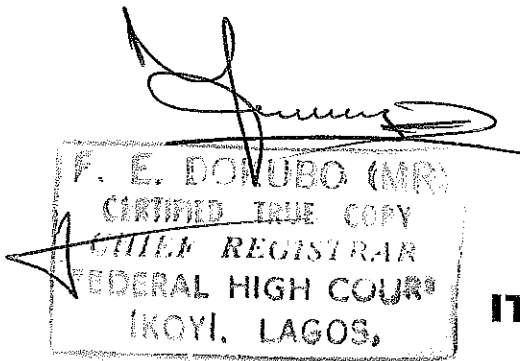 F. E. DOMUBO (MR)
CERTIFIED TRUE COPY
CHIEF REGISTRAR
FEDERAL HIGH COURT
IKOYI. LAGOS,
IT